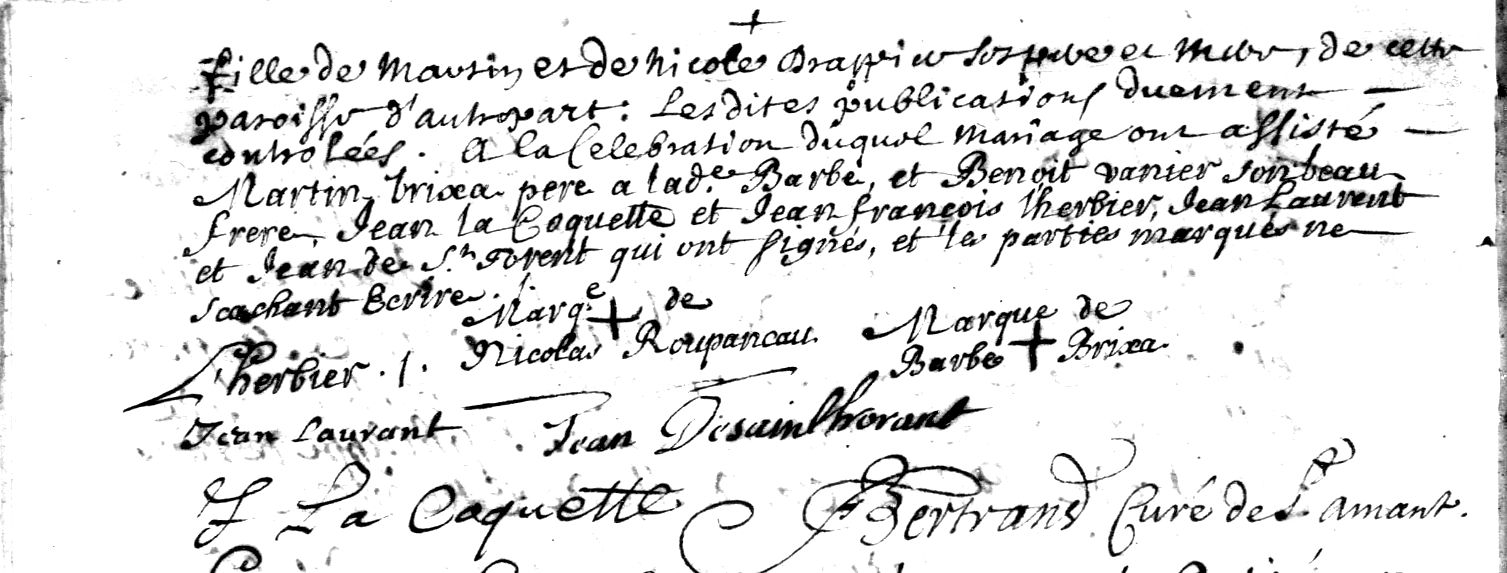 fille de Martin et de Nicole Drappier ses pere et mere, de cette
paroisse d'autrepart: Lesdites publications duement
controlées. A la Celebration duquel mariage ont assisté
Martin brixa pere a lade Barbe, et Benoit vanier son beau
frere, Jean la Coquette et Jean françois lherbier, Jean Laurent
et Jean de St. florent qui ont signés, et les parties marqués ne
scachant Ecrire.
Marqe + de Marque de
Nicolas Roupancau Barbe + Brixa
Lherbier
Jean Laurant Jean Desainthorant
J La Coquette Bertrand Curé de St Amant.